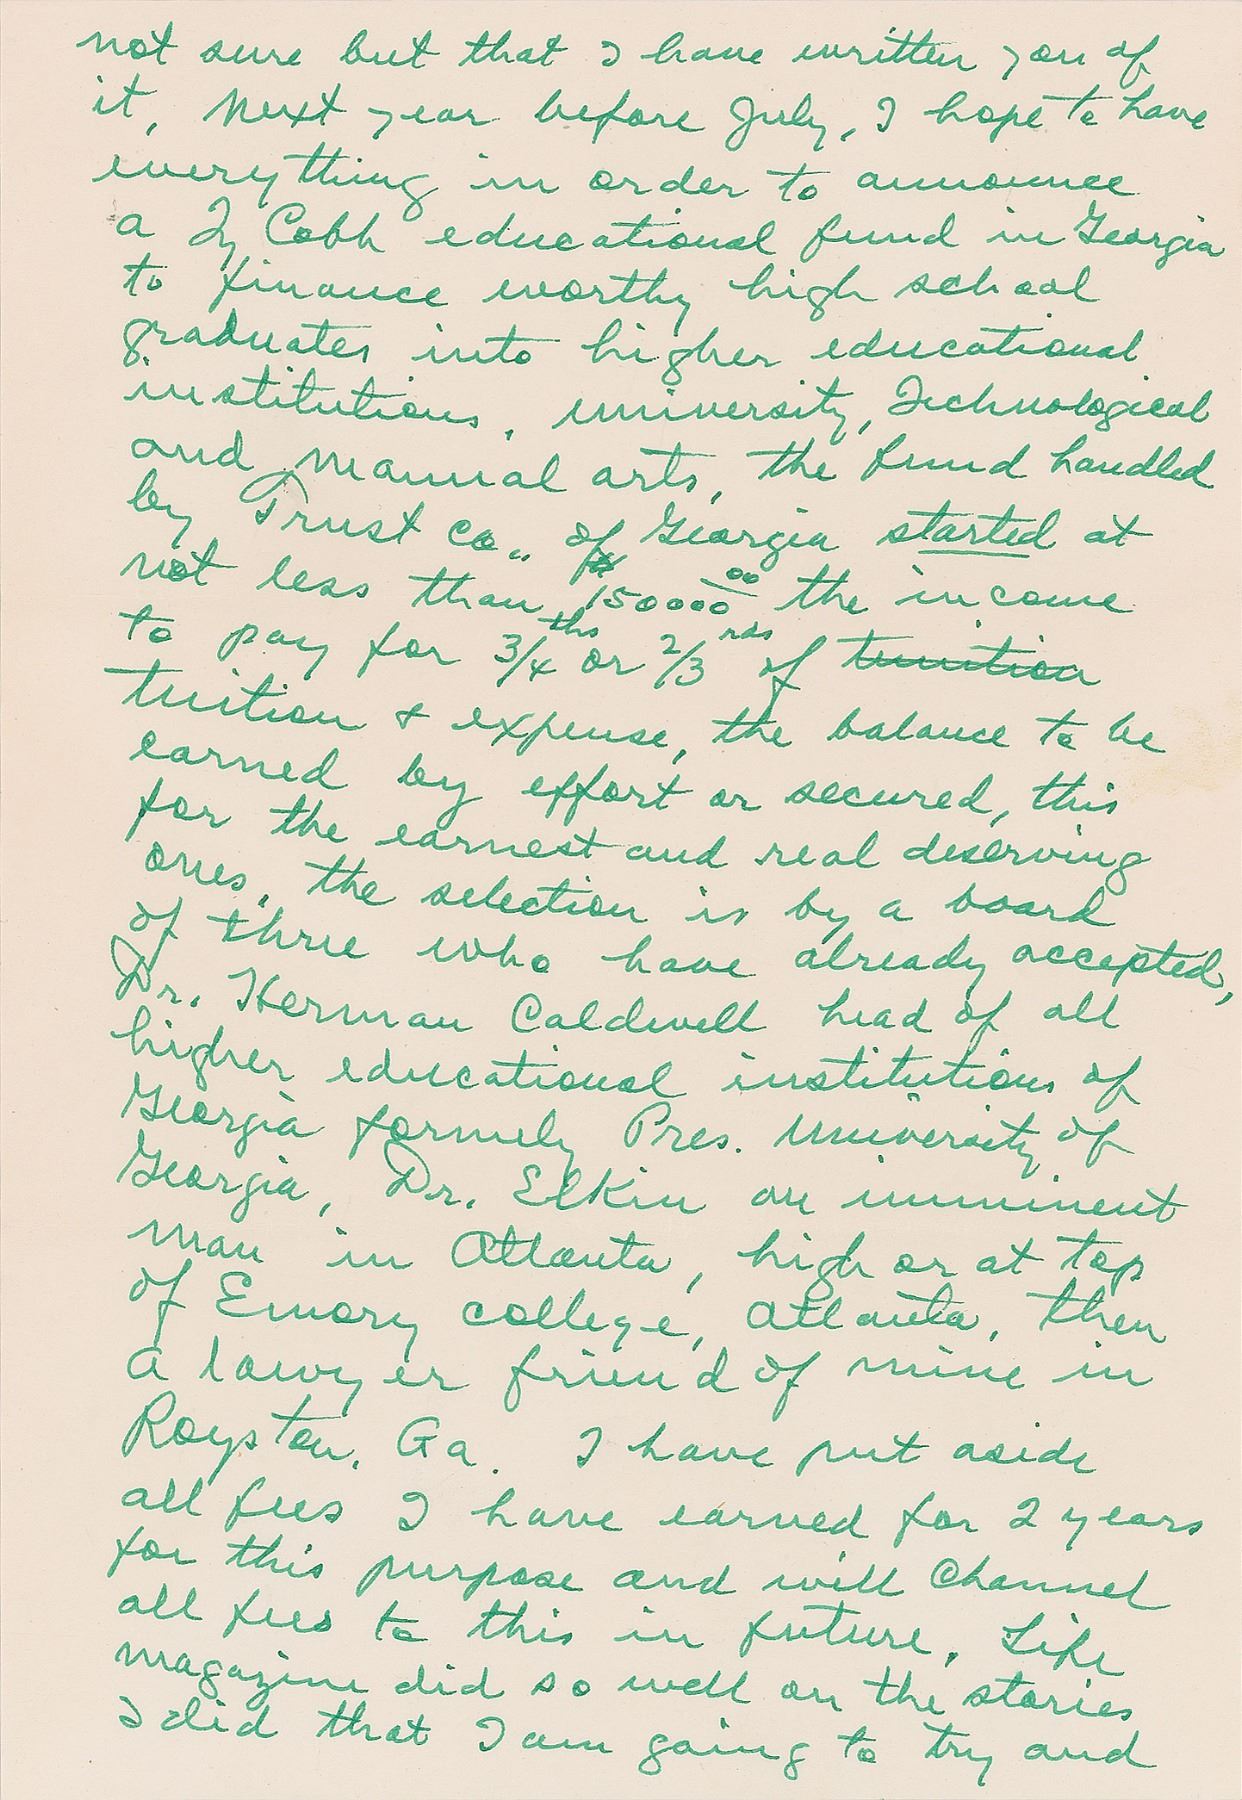 not sure but that I have written you of
it, Next year before July, I hope to have
everything in order to announce
a Ty Cobb educational fund in Georgia
to finance worthy high school
graduates into higher educational
institutions, university, Technological
and manual arts, the fund handled
by Trust Co., of Georgia started at
not less than $150000 00 the income
to pay for 3/4 ths or 2/3 rds of tunition
tuition & expense, the balance to be
earned by effort or secured, this
for the earnest and real deserving
ones, the selection is by a board
of three who have already accepted,
Dr. Herman Caldwell head of all
higher educational institutions of
Georgia formely Pres. University of
Georgia, Dr. Elkin an imminent
man in Atlanta, high or at top
of Emory college, Atlanta, then
a lawyer friend of mine in
Royston, Ga. I have put aside
all fees I have earned for 2 years
for this purpose and will Channel
all fees to this in future, Life
magazine did so well on the stories
I did that I am going to try and